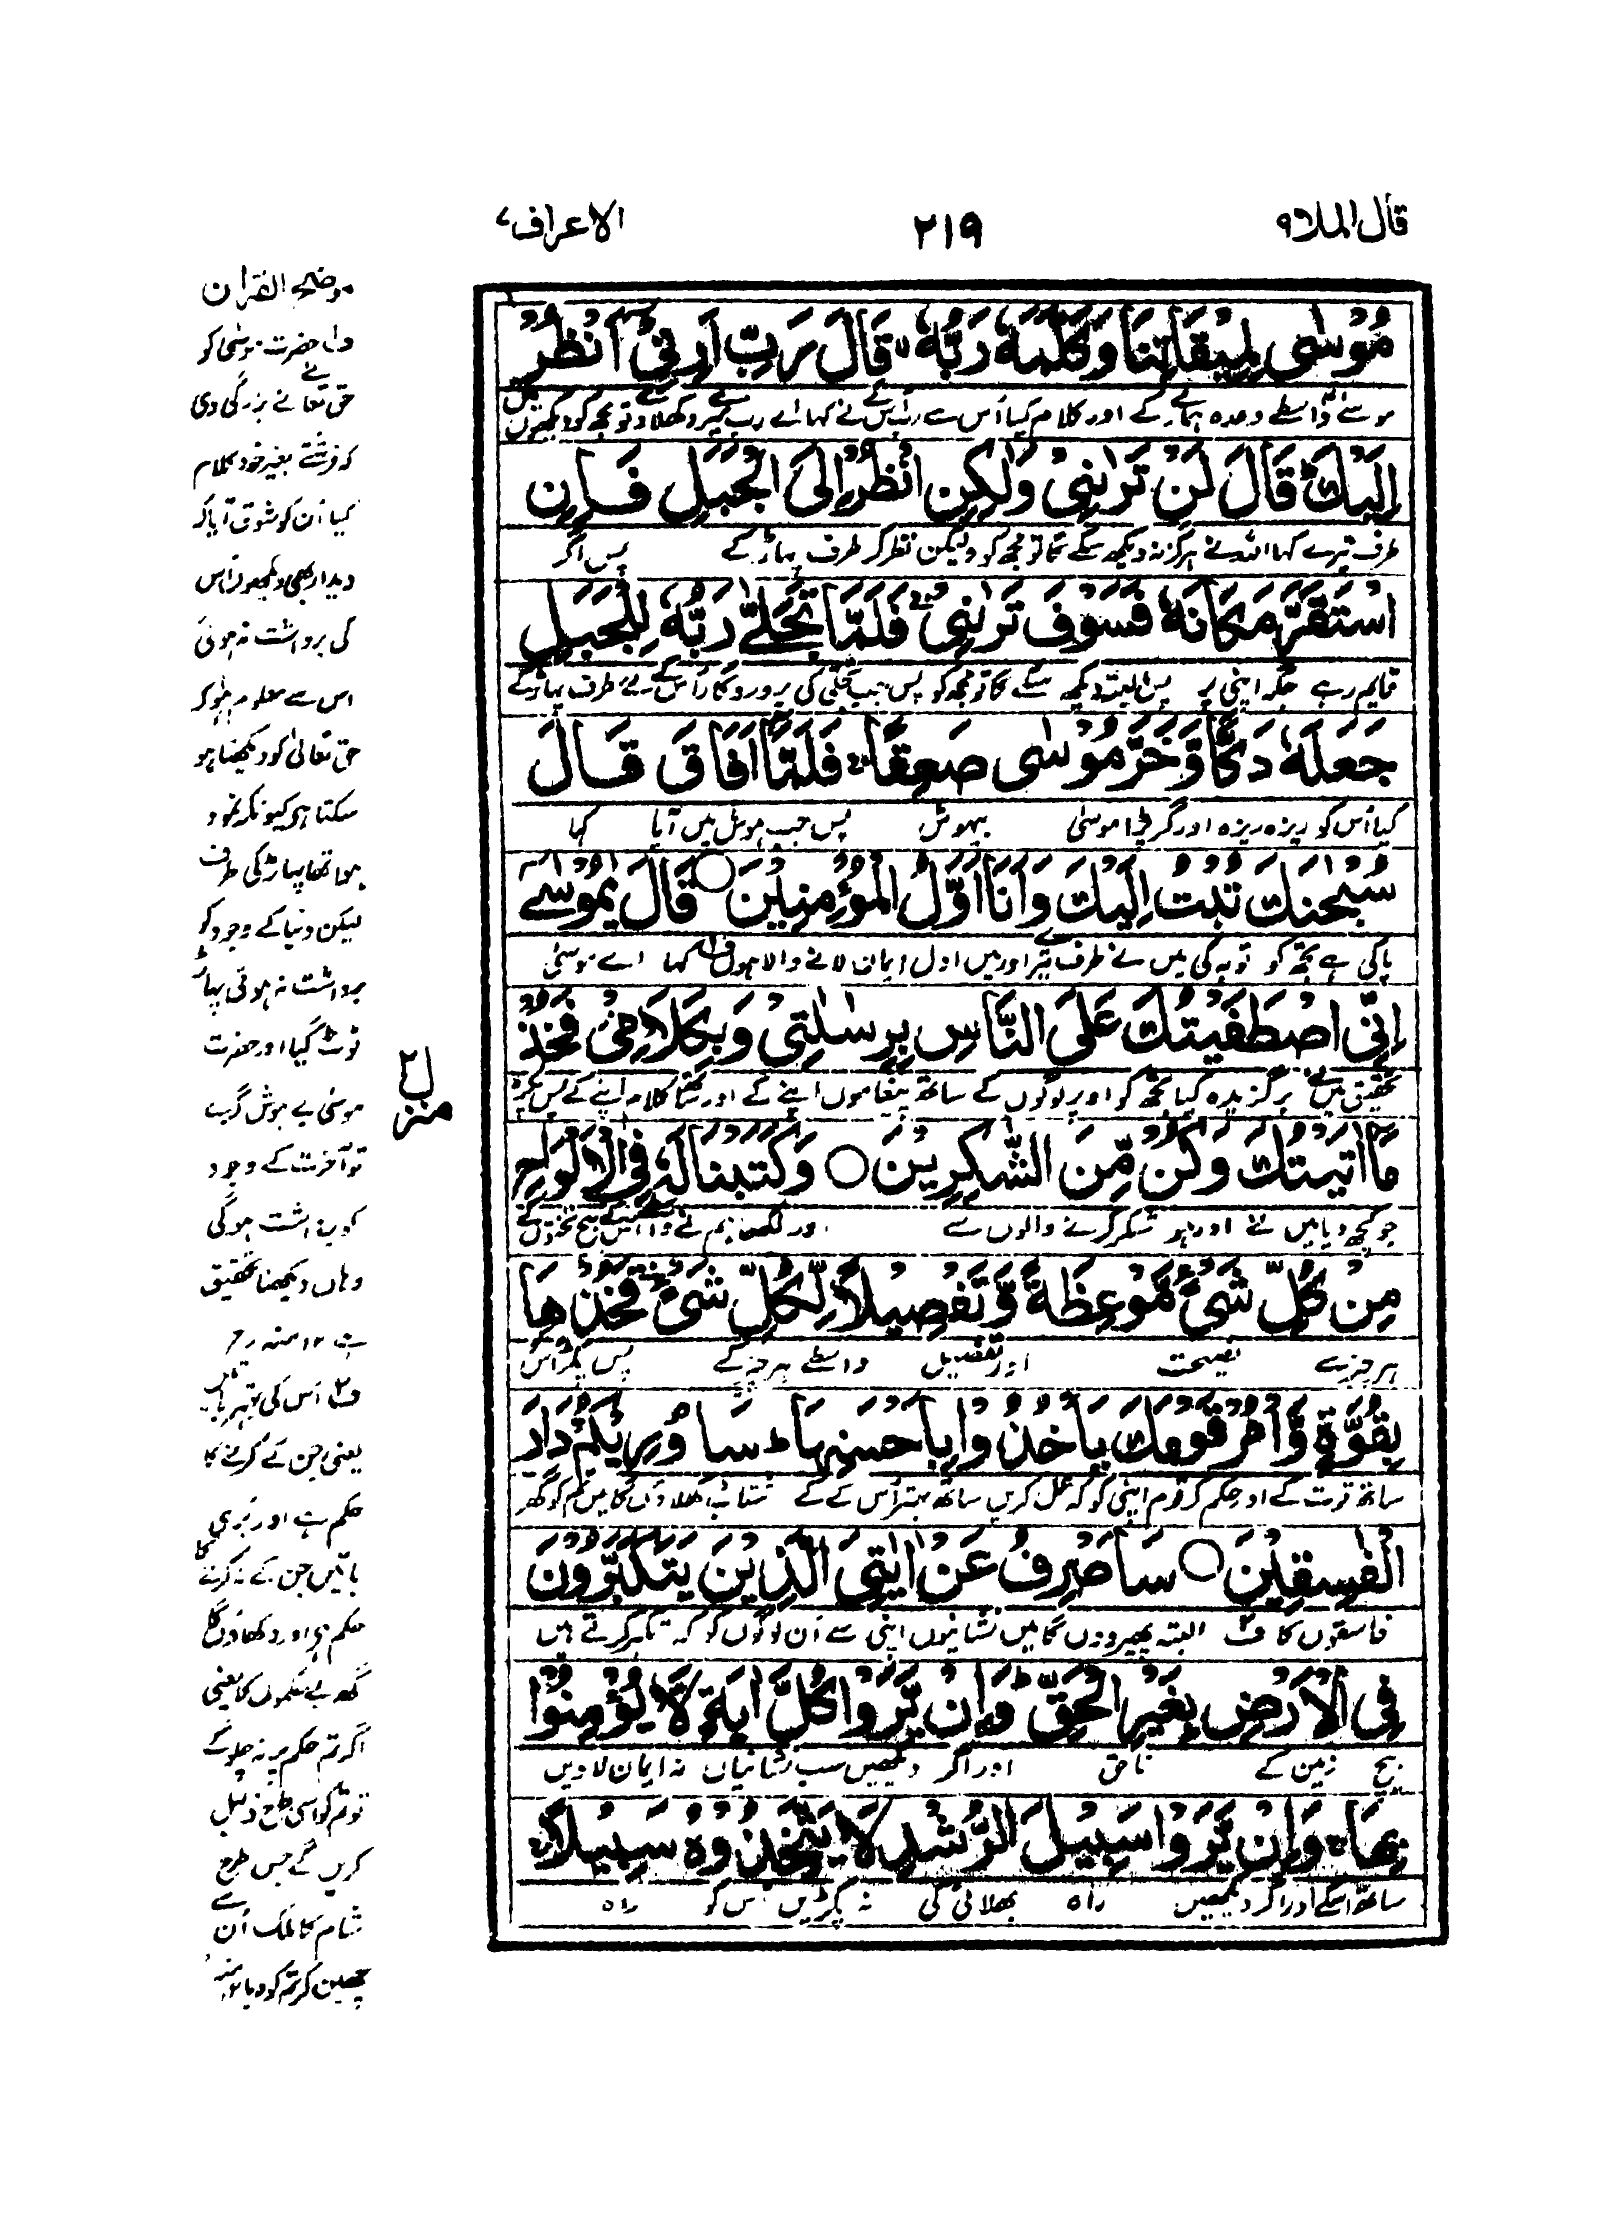 قال الملا ٩
٢١٩
الاعراف ٧
مُوْسٰى لِمِيْقَاتِنَا وَكَلَّمَهٗ رَبُّهٗ ۙ قَالَ رَبِّ اَرِنِيْۤ اَنْظُرْ
موسےٰ واسطے وعدہ ہمارے کے اور کلام کیا اُس سے رب اُس کے نے کہا اے رب میرے دکھلا دے تو مجھ کو دیکھوں میں
اِلَيْكَ ؕ قَالَ لَنْ تَرٰىنِيْ وَلٰكِنِ انْظُرْ اِلَى الْجَبَلِ فَاِنِ
طرف تیرے کہا اللہ نے ہرگز نہ دیکھ سکے گا تو مجھ کو ولیکن نظر کر طرف پہاڑ کے پس اگر
اسْتَقَرَّ مَكَانَهٗ فَسَوْفَ تَرٰىنِيْ ۚ فَلَمَّا تَجَلّٰى رَبُّهٗ لِلْجَبَلِ
قایم رہے جگہ اپنی پر پس البتہ دیکھ سکے گا تو مجھ کو پس جب تجلی کی پروردگار اُس کے نے طرف پہاڑ کے
جَعَلَهٗ دَكًّا وَّخَرَّ مُوْسٰى صَعِقًا ۚ فَلَمَّاۤ اَفَاقَ قَالَ
کیا اُس کو ریزہ ریزہ اور گر پڑا موسیٰ بیہوش پس جب ہوش میں آیا کہا
سُبْحٰنَكَ تُبْتُ اِلَيْكَ وَاَنَا اَوَّلُ الْمُؤْمِنِيْنَ ○ قَالَ يٰمُوْسٰٓى
پاکی ہے تجھ کو توبہ کی میں نے طرف تیرے اور میں اول ایمان لانے والا ہوں ف کہا اے موسیٰ
اِنِّى اصْطَفَيْتُكَ عَلَى النَّاسِ بِرِسٰلٰتِيْ وَبِكَلَامِيْ ۖ فَخُذْ
تحقیق میں نے برگزیدہ کیا تجھ کو اوپر لوگوں کے ساتھ پیغاموں اپنے کے اور ساتھ کلام اپنے کے پس پکڑ
مَاۤ اٰتَيْتُكَ وَكُنْ مِّنَ الشّٰكِرِيْنَ ○ وَكَتَبْنَا لَهٗ فِى الْاَلْوَاحِ
جو کچھ دیا میں نے اور ہو شکر کرنے والوں سے اور لکھا ہم نے واسطے اُس کے بیچ تختوں کے
مِنْ كُلِّ شَيْءٍ مَّوْعِظَةً وَّتَفْصِيْلًا لِّكُلِّ شَيْءٍ ۚ فَخُذْهَا
ہر چیز سے نصیحت اور تفصیل واسطے ہر چیز کے پس پکڑ اُس کو
بِقُوَّةٍ وَّاْمُرْ قَوْمَكَ يَاْخُذُوْا بِاَحْسَنِهَا ؕ سَاُورِيْكُمْ دَارَ
ساتھ قوت کے اور حکم کر قوم اپنی کو کہ عمل کریں ساتھ بہتر اُس کے کے شتاب دکھلاؤں گا میں تم کو گھر
الْفٰسِقِيْنَ ○ سَاَصْرِفُ عَنْ اٰيٰتِيَ الَّذِيْنَ يَتَكَبَّرُوْنَ
فاسقوں کا ف۲ البتہ پھیروں گا میں نشانیوں اپنی سے اُن لوگوں کو کہ تکبر کرتے ہیں
فِى الْاَرْضِ بِغَيْرِ الْحَقِّ ؕ وَاِنْ يَّرَوْا كُلَّ اٰيَةٍ لَّا يُؤْمِنُوْا
بیچ زمین کے ناحق اور اگر دیکھیں سب نشانیاں نہ ایمان لاویں
بِهَا ۚ وَاِنْ يَّرَوْا سَبِيْلَ الرُّشْدِ لَا يَتَّخِذُوْهُ سَبِيْلًا ۚ
ساتھ اسکے اور اگر دیکھیں راہ بھلائی کی نہ پکڑیں اس کو راہ
منزل ٢
موضح القرآن
ف۱ حضرت موسٰی کو
حق تعالٰے نے بزرگی دی
کہ فرشتے بغیر خود کلام
کیا اُن کو شوق آیا کہ
دیدار بھی دیکھوں اُس
کی برداشت نہ ہوئی
اس سے معلوم ہوا کہ
حق تعالیٰ کو دیکھنا ہو
سکتا ہی کیونکہ نمود
ہوا تھا پہاڑ کی طرف
لیکن دنیا کے وجود کو
برداشت نہ ہوئی پہاڑ
ٹوٹ گیا اور حضرت
موسٰی بے ہوش گرے
تو آخرت کے وجود
کو برداشت ہوگی
وہاں دیکھنا تحقیق
ہے ۱۲ منہ رح
ف۲ اُس کی بہتر باتیں
یعنی جن کے کرنے کا
حکم ہے اور بُری
باتیں جن کے نہ کرنے کا
حکم ہی اور دکھاؤں گا
گھر بے حکموں کا یعنی
اگر تم حکم پر نہ چلو گے
تو تم کو اسی طرح ذلیل
کریں گے جس طرح
شام کا ملک اُن سے
چھین کر تم کو دیا ۱۲ منہ